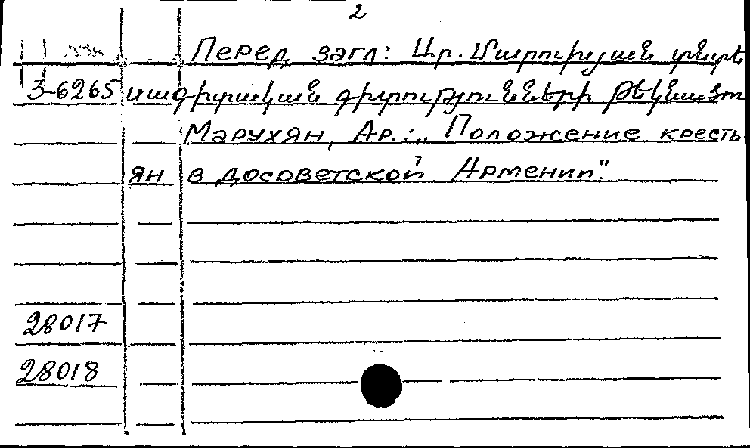 2
Перед загл: Ար. Մարուխյան տնտե
3-6265 սագիտական գիտությունների թեկնածու
Марухян, Ар.: „Положение кресть
ян в досоветской Армении".
28017
28018